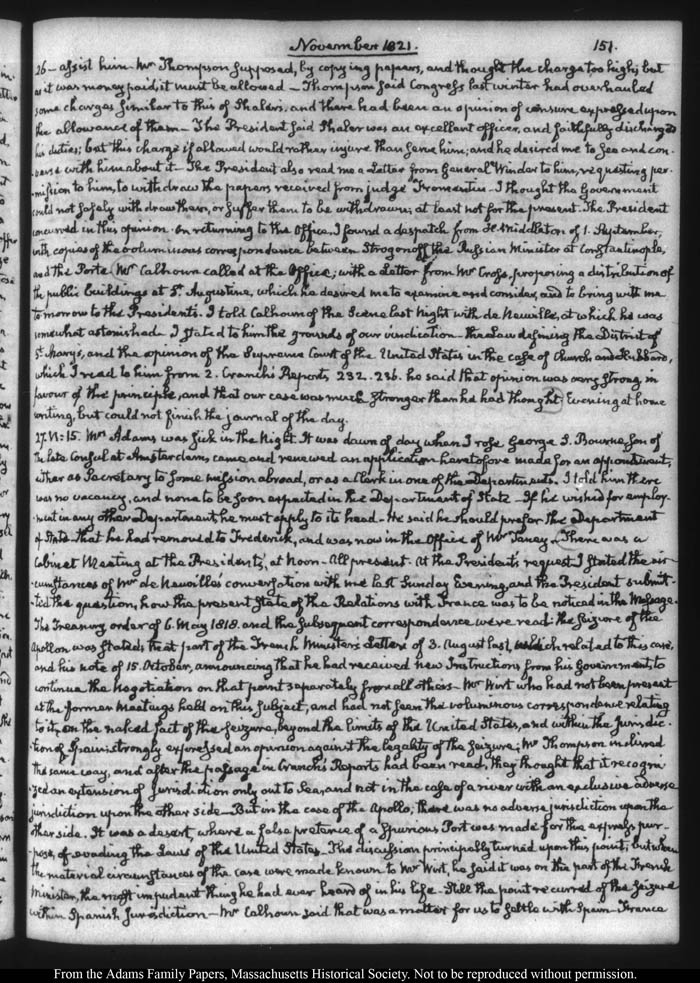 November 1821. 151.
26– assist him– Mr Thompson supposed, by copying papers, and thought the charge too high; but
as it was money paid, it must be allowed– Thompson said Congress last winter had overhauled
some charges similar to this of Shaler's, and there had been an opinion of censure expressed upon
the allowance of them– The President said Shaler was an excellent officer, and faithfully discharged
his duties; but this charge if allowed would rather injure than serve him; and he desired me to see and con-
verse with him about it– The President also read me a Letter from General Winder to him, requesting per-
mission to him, to withdraw the papers received from judge Fromentin– I thought the Government
could not safely withdraw them, or suffer them to be withdrawn; at least not for the present. The President
concurred in this opinion. On returning to the Office, I found a despatch from H. Middleton of 1. September,
with copies of the voluminous correspondence between Strogonoff the Russian Minister at Constantinople,
and the Porte. Mr Calhoun called at the Office; with a Letter from Mr Cross, proposing a distribution of
the public buildings at St. Augustine, which he desired me to examine and consider, and to bring with me
tomorrow to the Presidents. I told Calhoun of the Scene last Night with de Neuville, at which he was
somewhat astonished. I stated to him the grounds of our vindication– the Law defining the District of
St. Marys, and the opinion of the Supreme Court of the United States in the case of Church and Hubbard,
which I read to him from 2. Cranch's Reports, 232. 236. he said that opinion was very strong in
favour of the principle, and that our case was much stronger than he had thought. Evening at home
writing, but could not finish the journal of the day.
27. VI:15. Mrs Adams was sick in the Night. It was dawn of day when I rose George S. Bourne, Son of
the late Consul at Amsterdam, came and renewed an application heretofore made for an appointment,
either as Secretary to some mission abroad, or as a Clerk in one of the Departments. I told him there
was no vacancy, and none to be soon expected in the Department of State– If he wished for employ-
ment in any other Department, he must apply to its head– He said he should prefer the Department
of State– that he had removed to Frederick, and was now in the Office of Mr Taney– There was a
Cabinet Meeting at the President's, at Noon– All present. At the President's request I stated the cir-
cumstances of Mr de Neuville's conversation with me last Sunday Evening, and the President submit-
ted the question, how the present State of the Relations with France was to be noticed in the Message.
The Treasury order of 6. May 1818. and the subsequent correspondence were read: the Seizure of the
Apollon was stated; that part of the French Minister's Letter of 3. August last, which related to this case,
and his note of 15. October, announcing that he had received new Instructions from his Government, to
continue the Negotiation on that point separately from all others– Mr Wirt who had not been present
at the former Meetings held on this subject, and had not seen the voluminous correspondence relating
to it, on the naked fact of the Seizure, beyond the limits of the United States, and within the Jurisdic-
tion of Spain strongly expressed an opinion against the legality of the Seizure; Mr Thompson inclined
the same way, and after the passage in Cranch's Reports had been read, they thought that it recogni-
zed an extension of Jurisdiction only out to Sea, and not in the case of a river with an exclusive adverse
jurisdiction upon the other side– But in the case of the Apollo, there was no adverse jurisdiction upon the
other side. It was a desert, where a false pretence of a spurious Port was made for the express pur-
pose, of evading the Laws of the United States– The discussion principally turned upon this point; but when
the material circumstances of the case were made known to Mr Wirt, he said it was on the part of the French
Minister, the most impudent thing he had ever heard of in his life– Still the point recurred of the Seizure
within Spanish Jurisdiction– Mr Calhoun said that was a matter for us to settle with Spain– France
From the Adams Family Papers, Massachusetts Historical Society. Not to be reproduced without permission.